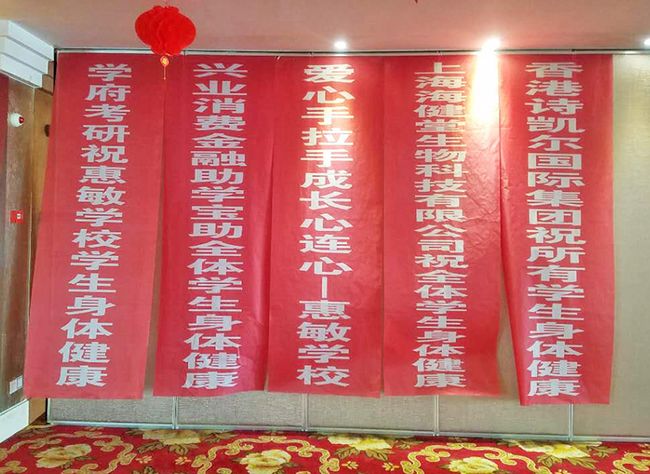 学府考研祝惠敏学校学生身体健康
兴业消费金融助学宝助全体学生身体健康
爱心手拉手成长心连心—惠敏学校
上海海健堂生物科技有限公司祝全体学生身体健康
香港诗凯尔国际集团祝所有学生身体健康